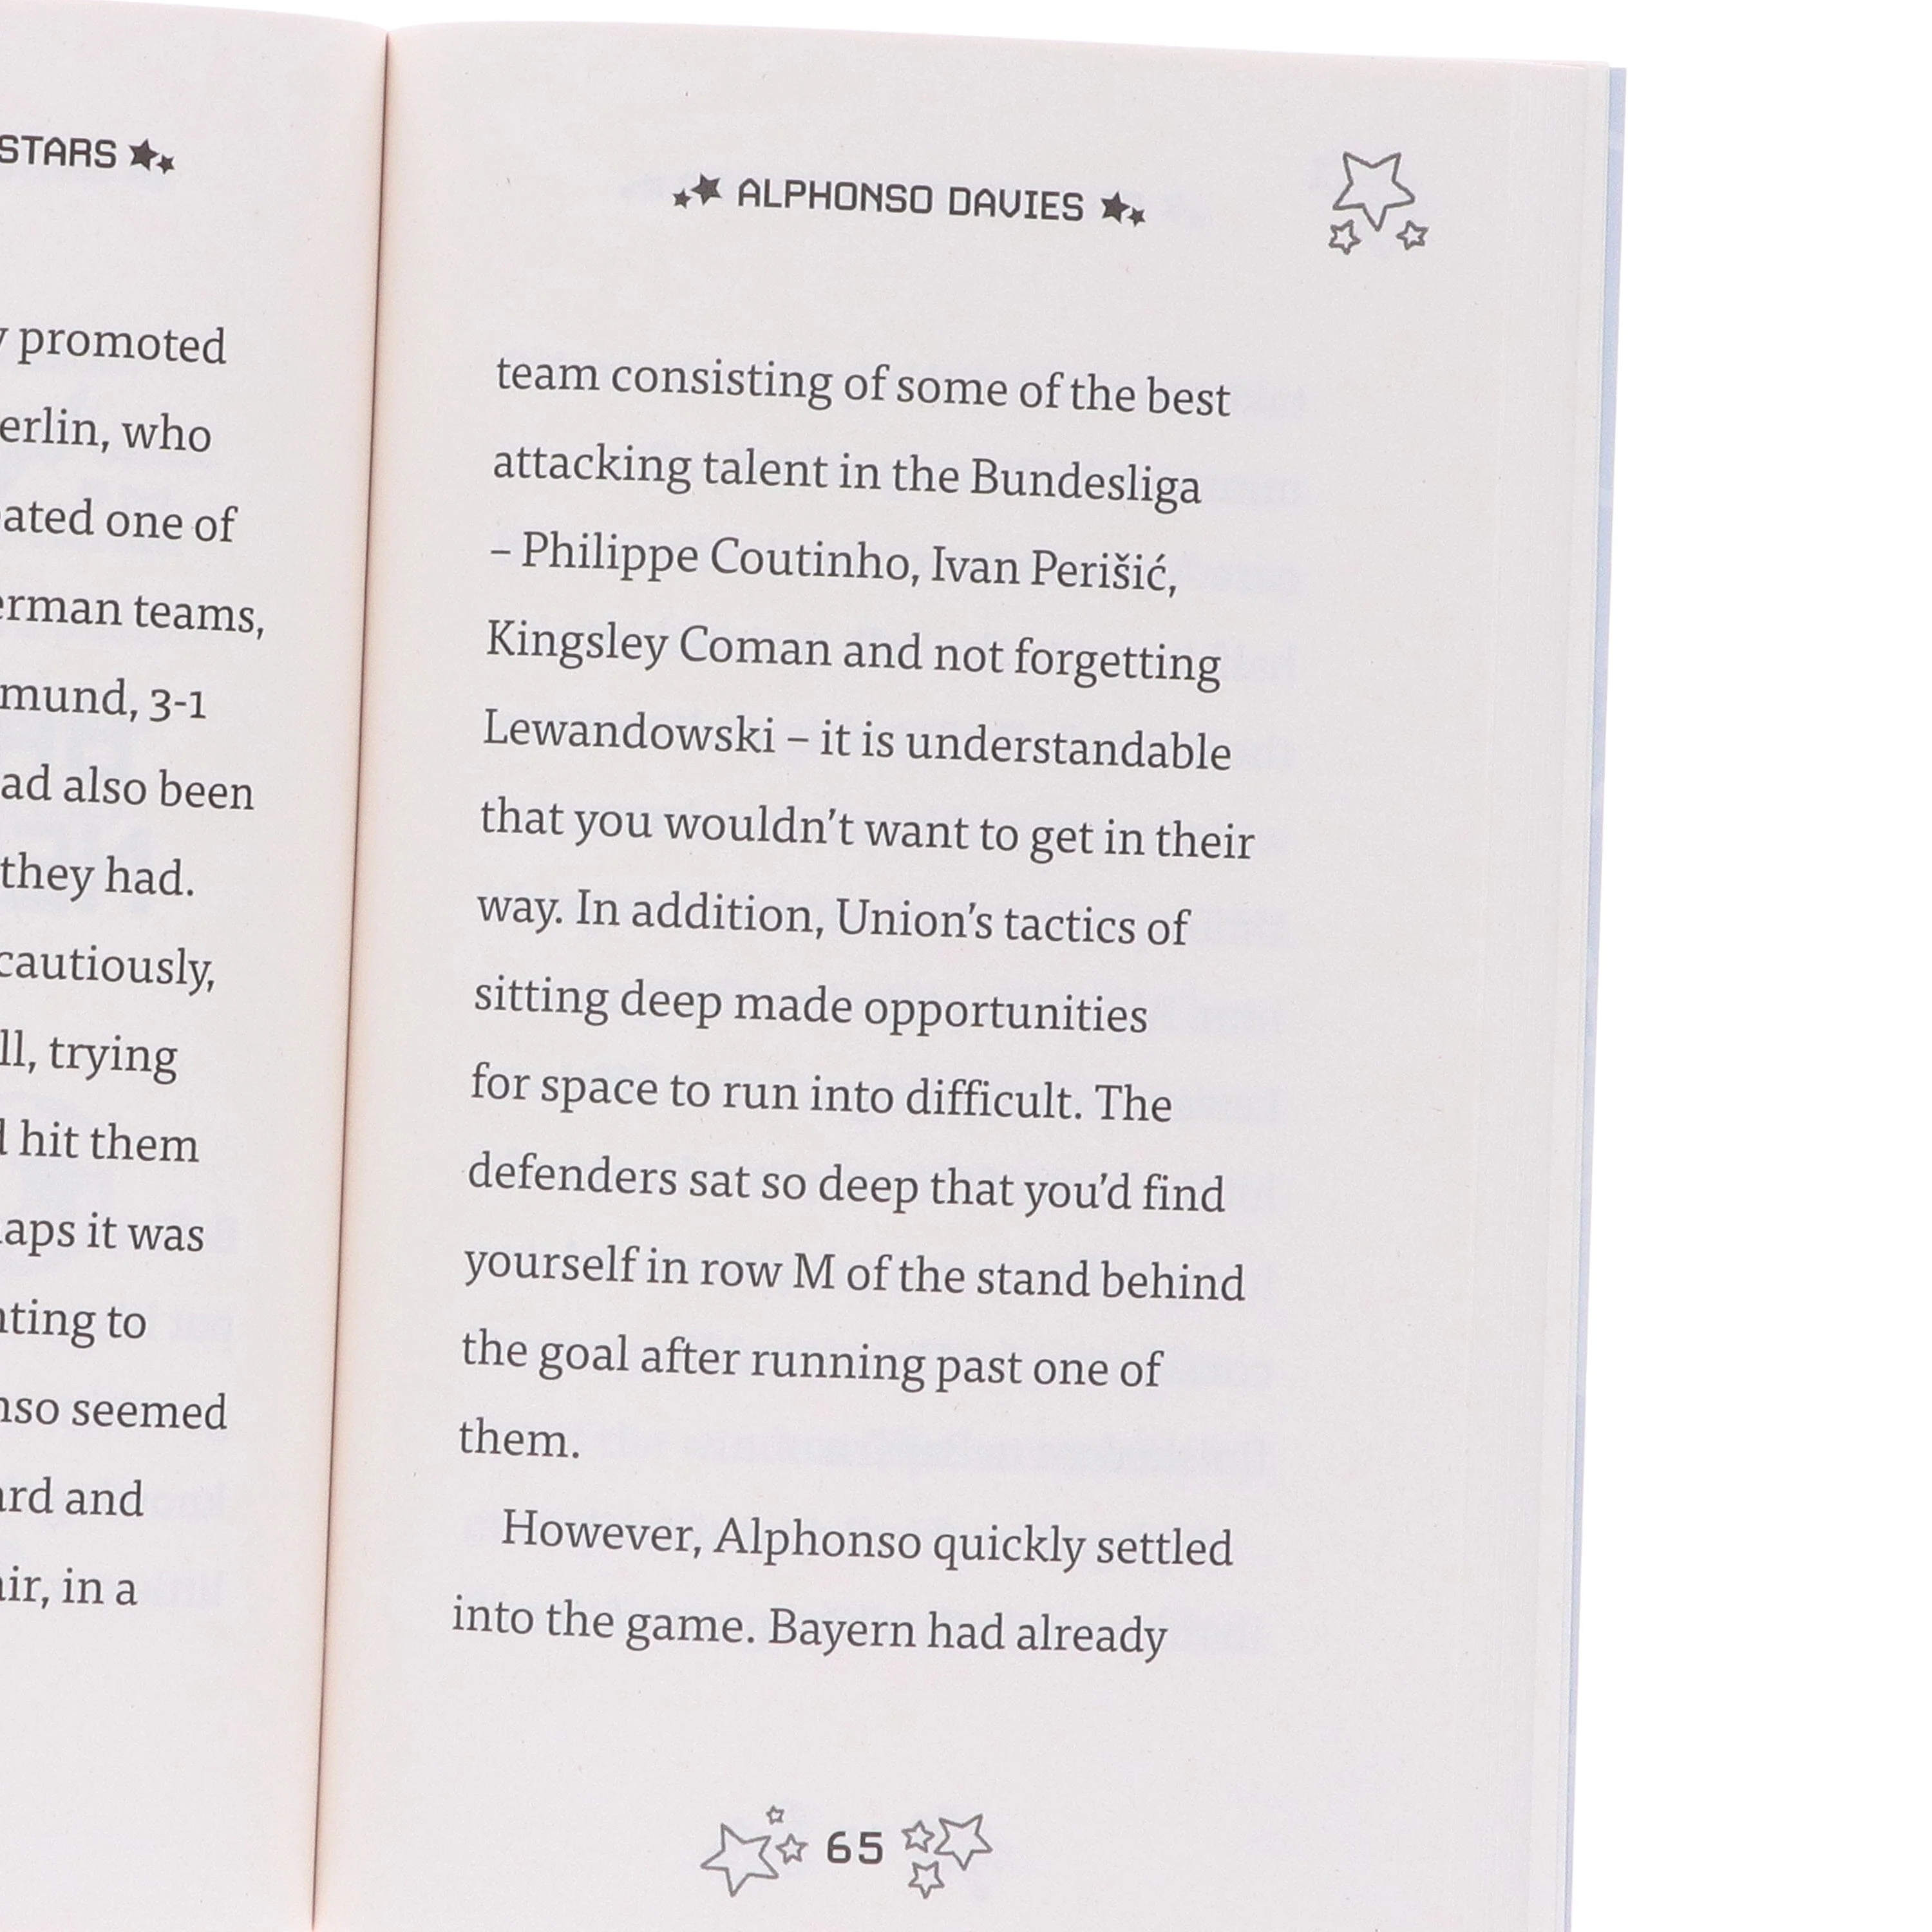 STARS
promoted
who
one of
teams,
3-1
also been
they had.
cautiously,
trying
hit them
it was
to
seemed
and
in a
ALPHONSO DAVIES
team consisting of some of the best
attacking talent in the Bundesliga
– Philippe Coutinho, Ivan Perišić,
Kingsley Coman and not forgetting
Lewandowski – it is understandable
that you wouldn’t want to get in their
way. In addition, Union’s tactics of
sitting deep made opportunities
for space to run into difficult. The
defenders sat so deep that you’d find
yourself in row M of the stand behind
the goal after running past one of
them.
However, Alphonso quickly settled
into the game. Bayern had already
65